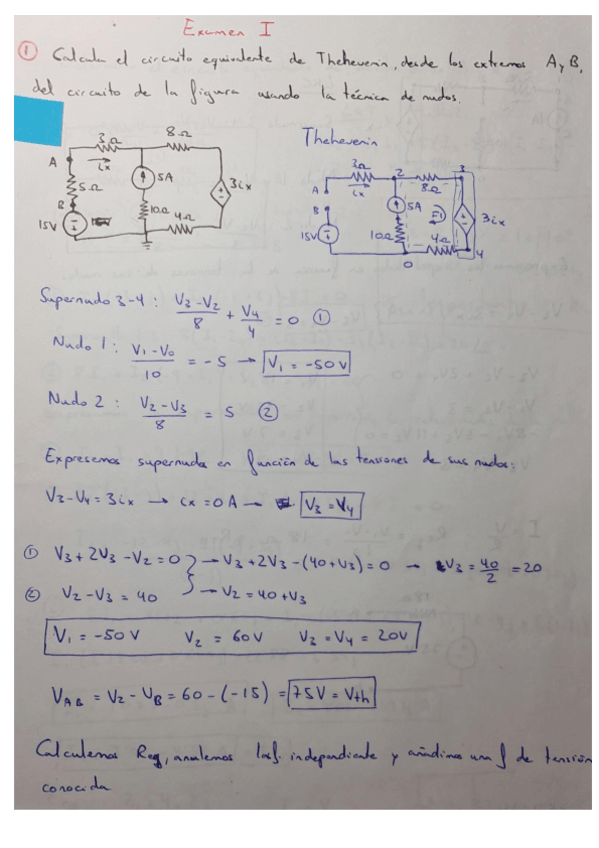 Examen I
① Calcula el circuito equivalente de Thehevenin, desde los extremos A y B,
del circuito de la figura usando la técnica de nudos.
Thehevenin
3Ω
8Ω
A
ix
5Ω
5A
3ix
B
10Ω
4Ω
15V
3Ω
2
3
A
ix
8Ω
5A
E1
B
3ix
15V
10Ω
4Ω
4
0
Supernudo 3-4: (V3 - V2)/8 + V4/4 = 0 ①
Nudo 1: (V1 - V0)/10 = -5 → V1 = -50V
Nudo 2: (V2 - V3)/8 = 5 ②
Expresemos supernudos en función de las tensiones de sus nudos:
V3 - V4 = 3ix → ix = 0A → V3 = V4
① V3 + 2V3 - V2 = 0 → V3 + 2V3 - (40 + V3) = 0 → V3 = 40/2 = 20
② V2 - V3 = 40 → V2 = 40 + V3
V1 = -50V V2 = 60V V3 = V4 = 20V
VAB = V2 - VB = 60 - (-15) = 75V = Vth
Calculemos Req, anulemos las f. independiente y añadimos una f de tensión
conocida